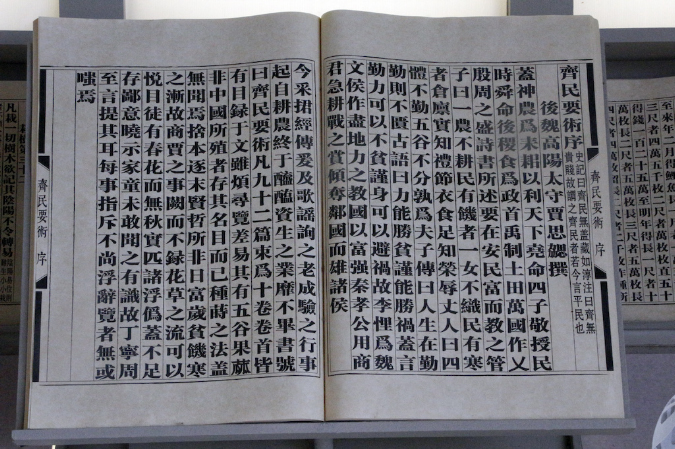 齊民要術序 史記曰齊民無蓋藏如淳注曰齊無
貴賤故謂之齊民者若今言平民也
後魏高陽太守賈思勰撰
蓋神農爲耒耜以利天下堯命四子敬授民
時舜命後稷食爲政首禹制土田萬國作乂
殷周之盛詩書所述要在安民富而教之管
子曰一農不耕民有饑者一女不織民有寒
者倉廩實知禮節衣食足知榮辱丈人曰四
體不勤五谷不分孰爲夫子傳曰人生在勤
勤則不匱古語曰力能勝貧謹能勝禍蓋言
勤力可以不貧謹身可以避禍故李悝爲魏
文侯作盡地力之教國以富強秦孝公用商
君急耕戰之賞傾奪鄰國而雄諸侯
齊民要術 序
今采捃經傳爰及歌謠詢之老成驗之行事
起自耕農終于醯醢資生之業靡不畢書號
曰齊民要術凡九十二篇束爲十卷卷首皆
有目録于文雖煩尋覽差易其有五谷果蓏
非中國所殖者存其名目而已種蒔之法蓋
無聞焉捨本逐末賢哲所非日富歲貧饑寒
之漸故商賈之事闕而不録花草之流可以
悅目徒有春花而無秋實匹諸浮僞蓋不足
存鄙意曉示家童未敢聞之有識故丁寧周
至言提其耳每事指斥不尚浮辭覽者無或
嗤焉
齊民要術 序
凡栽一切樹木欲記其陰陽不令轉易